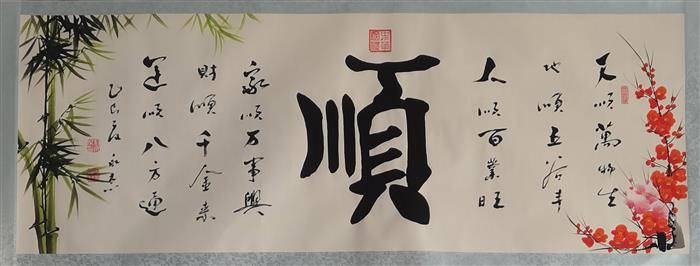 天順萬物生
地順五谷丰
人順百業旺
順
家順万事興
财順千金来
運順八方通
乙巳